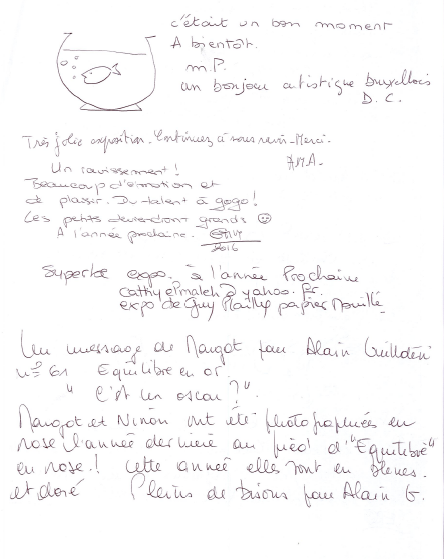 c'était un bon moment
A bientôt.
m.P.
un bonjour artistique bruxellois
D. C.
Très jolie exposition. Continuez à nous ravir. Merci.
A.M.A.
Un ravissement !
Beaucoup d'émotion et
de plaisir. Du talent à gogo !
Les petits deviendront grands
A l'année prochaine.
2016
Superbe expo. à l'année Prochaine
expo de Guy Mouillé
Un message de Margot pour Alain
n° 61 Equilibre en or.
" C'est un oscar ? "
Margot et Ninon ont été photographiées en
rose l'année dernière au pied d'"Equilibre"
en rose ! Cette année elles sont en bleues.
et doré Pleins de bisous pour Alain G.